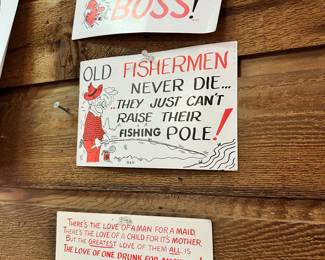 BOSS!
OLD FISHERMEN
NEVER DIE...
..THEY JUST CAN'T
RAISE THEIR
FISHING POLE!
THERE'S THE LOVE OF A MAN FOR A MAID,
THERE'S THE LOVE OF A CHILD FOR ITS MOTHER,
BUT THE GREATEST LOVE OF THEM ALL, IS
THE LOVE OF ONE DRUNK FOR